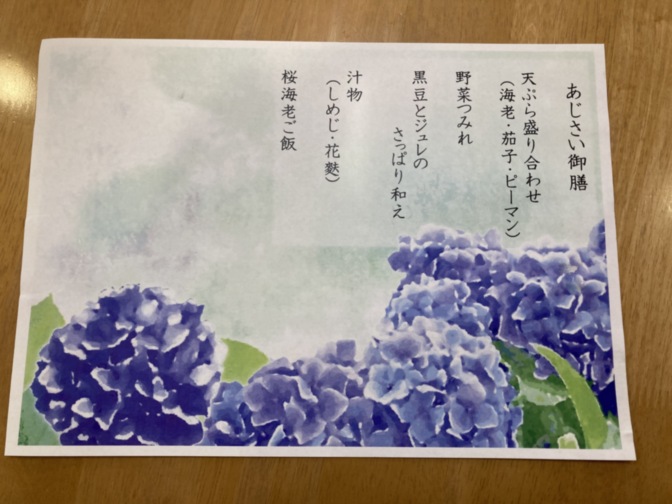 あじさい御膳
天ぷら盛り合わせ
（海老・茄子・ピーマン）
野菜つみれ
黒豆とジュレの
さっぱり和え
汁物
（しめじ・花麩）
桜海老ご飯